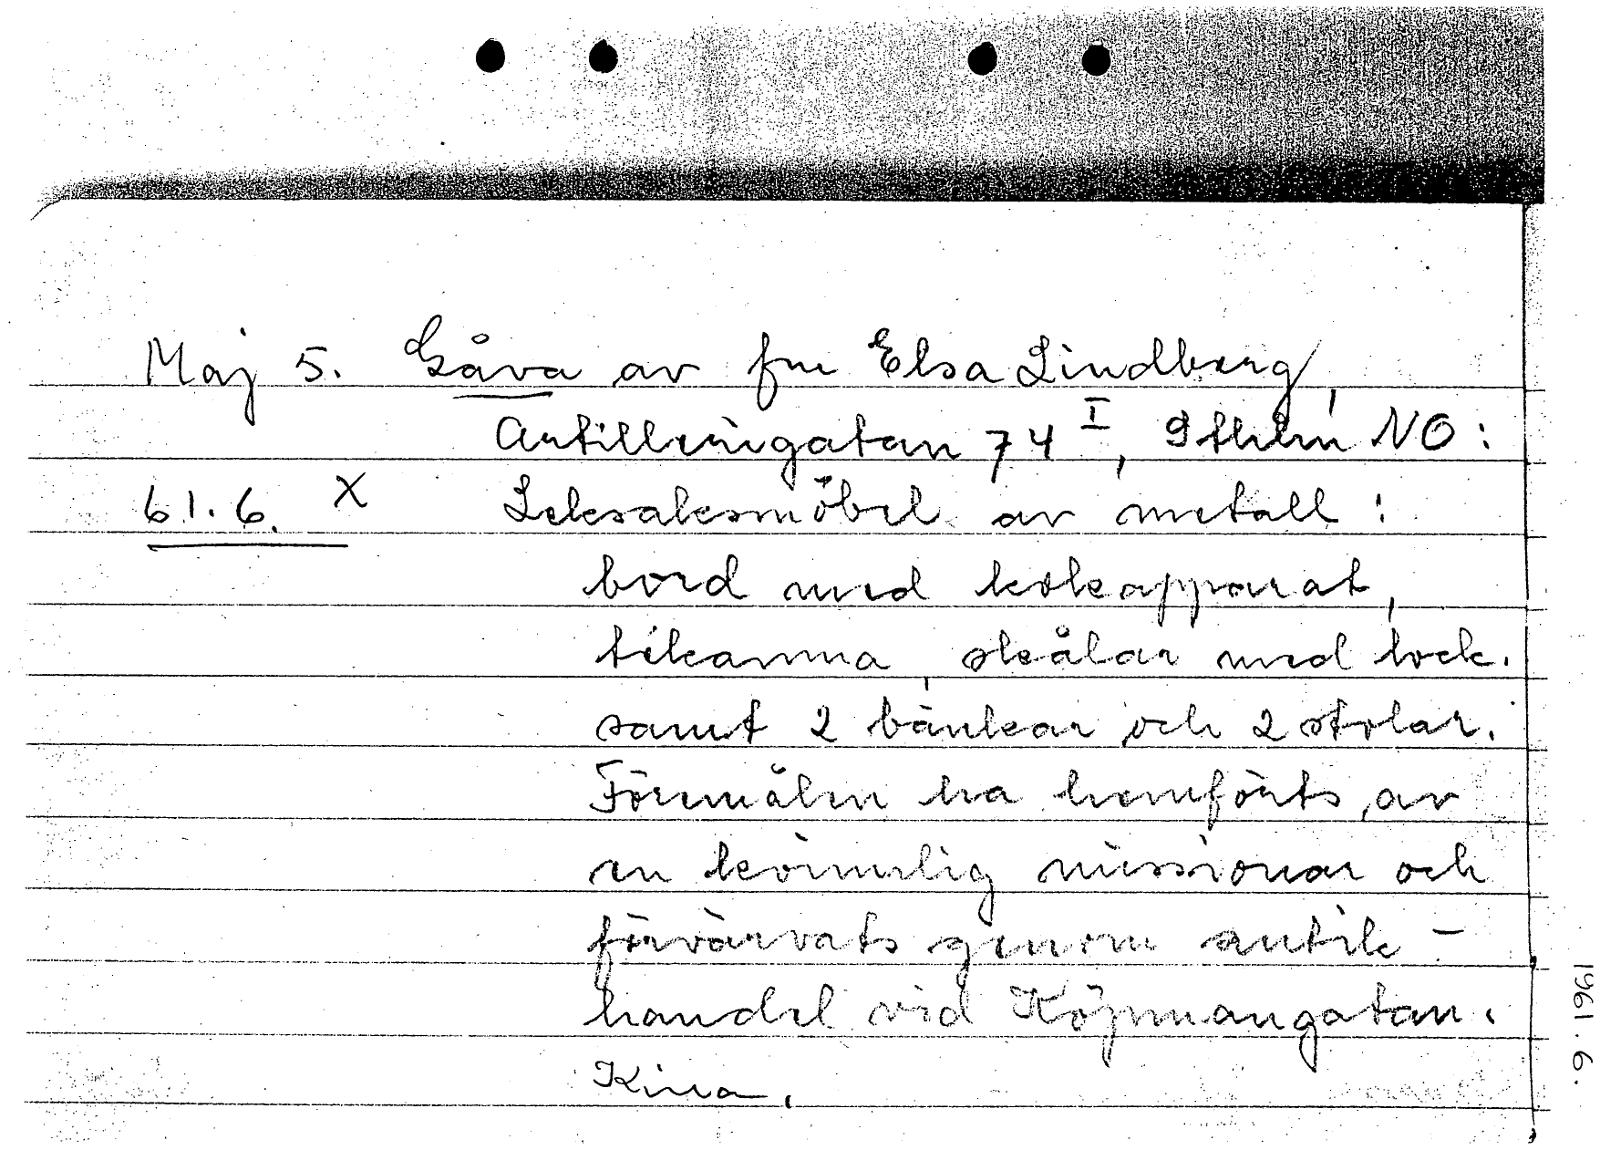 Maj 5. Gåva av fru Elsa Lindberg,
Artillerigatan 74 I, Sthlm NO:
61.6. X Leksaksmöbel av metall:
bord med kokapparat,
tekanna, skålar med lock.
samt 2 bänkar och 2 stolar.
Föremålen ha hemförts av
en kvinnlig missionär och
förvärvats genom antik-
handel vid Köpmangatan.
Kina.
1961.6.